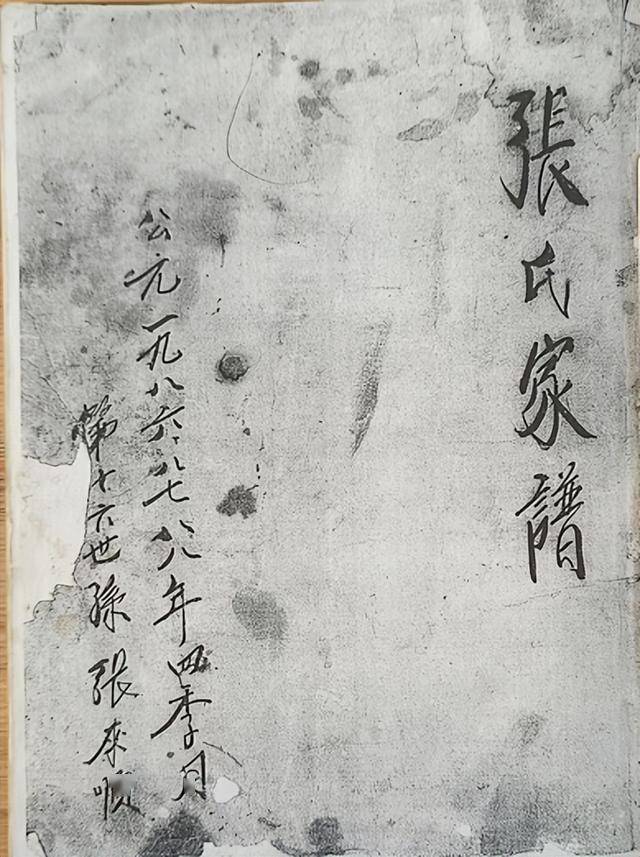 張氏家譜
公元一九八六.八七八八年四季月
第十六世孫張來順